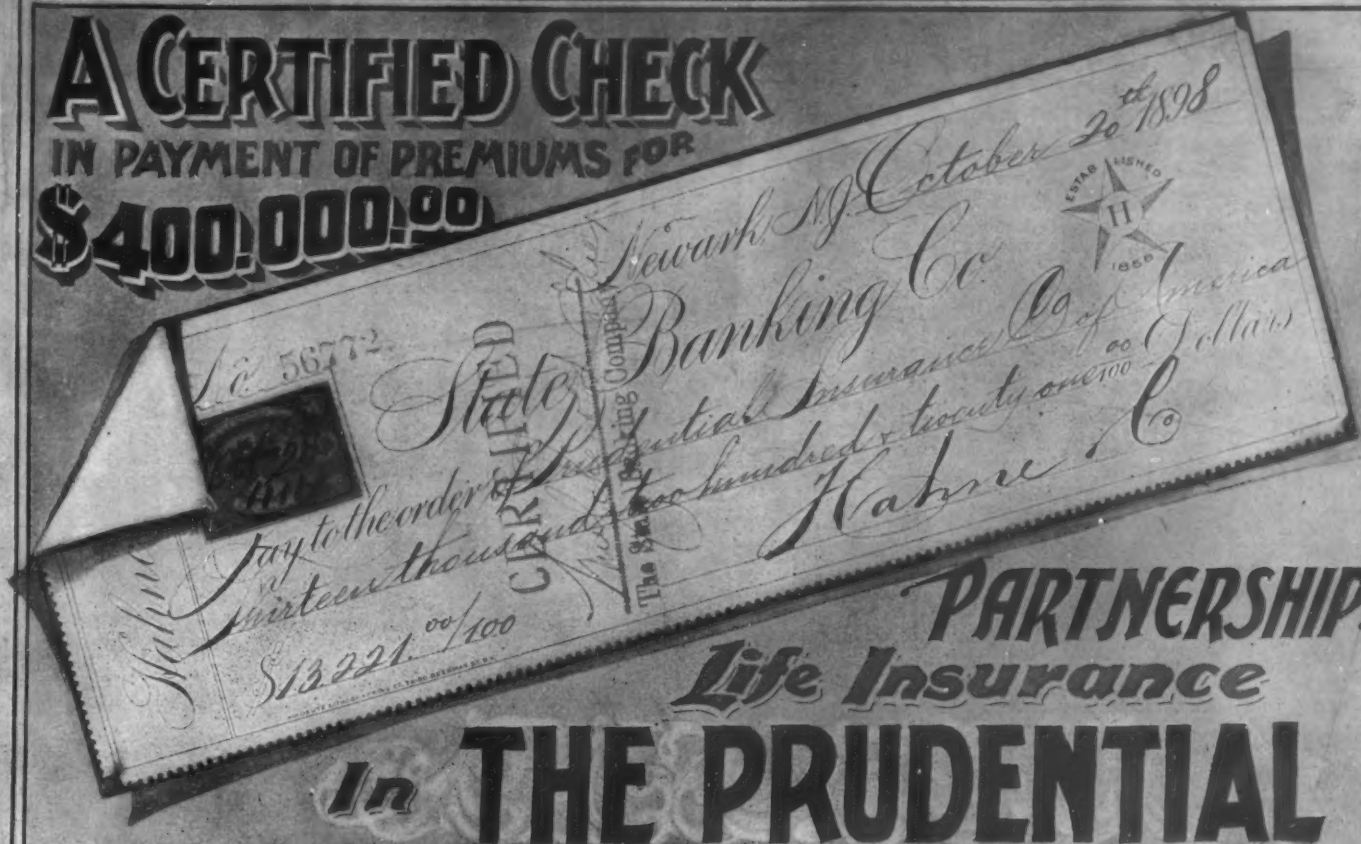 A CERTIFIED CHECK
IN PAYMENT OF PREMIUMS FOR
$400.000.00
Newark, N.J. October 20th 1898
ESTABLISHED
H
1858
No 56772
State Banking Co.
Pay to the order of Prudential Insurance Co of America
Thirteen thousand two hundred & twenty one 00/100 Dollars
$13.221. 00/100
Hahne & Co
CERTIFIED
The State Banking Company
Hahne
PARTNERSHIP
Life Insurance
In THE PRUDENTIAL